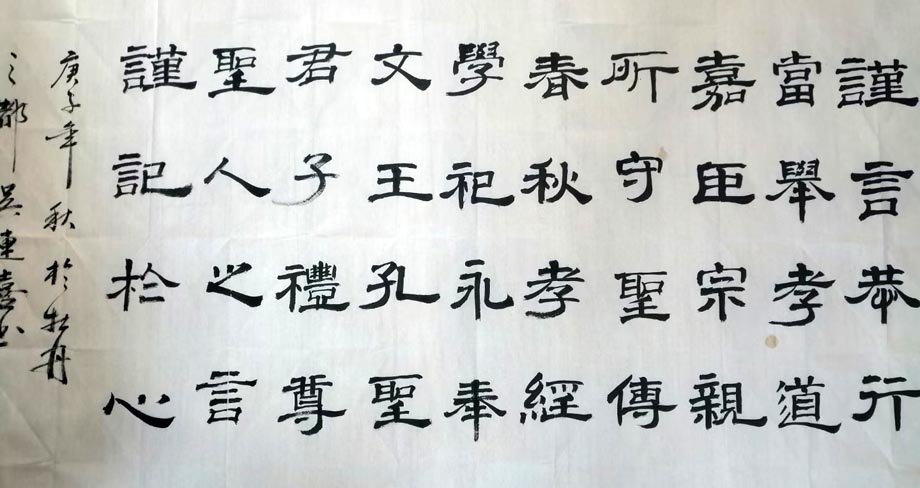 謹言恭行
當舉孝道
嘉臣宗親
所守聖傳
春秋孝經
學祀永奉
文王孔聖
君子禮尊
聖人之言
謹記於心
庚子年秋於牡丹
之都吳連喜書